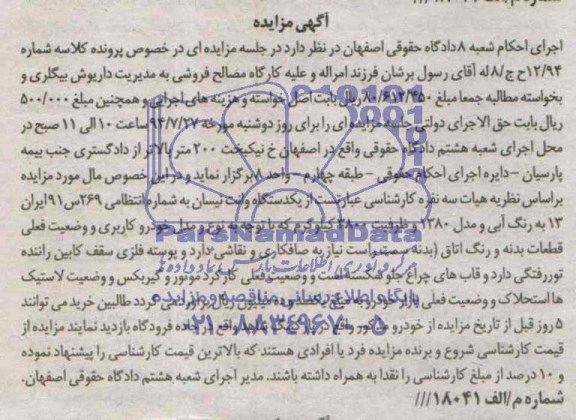 آگهی مزایده
اجرای احکام شعبه ۸ دادگاه حقوقی اصفهان در نظر دارد در جلسه مزایده ای در خصوص پرونده کلاسه شماره
۱۲/۹۴ح ج/۸ له آقای رسول برشان فرزند امراله و علیه کارگاه مصالح فروشی به مدیریت داریوش بیگلری و
بخواسته مطالبه جمعا مبلغ ۸۰/۶۱۲/۲۵۰ ریال بابت اصل خواسته و هزینه های اجرایی و همچنین مبلغ ۵۰۰/۰۰۰
ریال بابت حق الاجرای دولتی جلسه مزایده ای را برای روز دوشنبه مورخه ۹۴/۷/۲۷ ساعت ۱۰ الی ۱۱ صبح در
محل اجرای شعبه هشتم دادگاه حقوقی واقع در اصفهان خ نیکبخت ۲۰۰ متر بالاتر از دادگستری جنب بیمه
پارسیان – دایره اجرای احکام حقوقی – طبقه چهارم – واحد ۸ برگزار نماید و در این خصوص مال مورد مزایده
براساس نظریه هیات سه نفره کارشناسی عبارتست از یکدستگاه وانت نیسان به شماره انتظامی ۲۶۹س۹۱ ایران
۱۳ به رنگ آبی و مدل ۱۳۸۰ و ظرفیت کیلوگرم که با توجه به نوع و مدل خودرو کاربری و وضعیت فعلی
قطعات بدنه و رنگ اتاق (بدنه سمت راست نیاز به صافکاری و نقاشی دارد و پوسته فلزی سقف کابین راننده
تورفتگی دارد و قاب های چراغ جلو شکسته است و وضعیت فعلی کارکرد موتور و گیربکس و وضعیت لاستیک
ها استحلاک و وضعیت فعلی ریال برآورد می گردد طالبین خرید می توانند
۵ روز قبل از تاریخ مزایده از خودرو مذکور واقع در جاده فرودگاه بازدید نمایند مزایده از
قیمت کارشناسی شروع و برنده مزایده فرد یا افرادی هستند که بالاترین قیمت کارشناسی را پیشنهاد نموده
و ۱۰ درصد از مبلغ کارشناسی را نقدا به همراه داشته باشند. مدیر اجرای شعبه هشتم دادگاه حقوقی اصفهان.
شماره م/الف ۱۸۰۴۱///
ParsNamadData
پایگاه اطلاع رسانی مناقصه و مزایده
۰۲۱-۸۸۳۴۹۶۷۰-۵